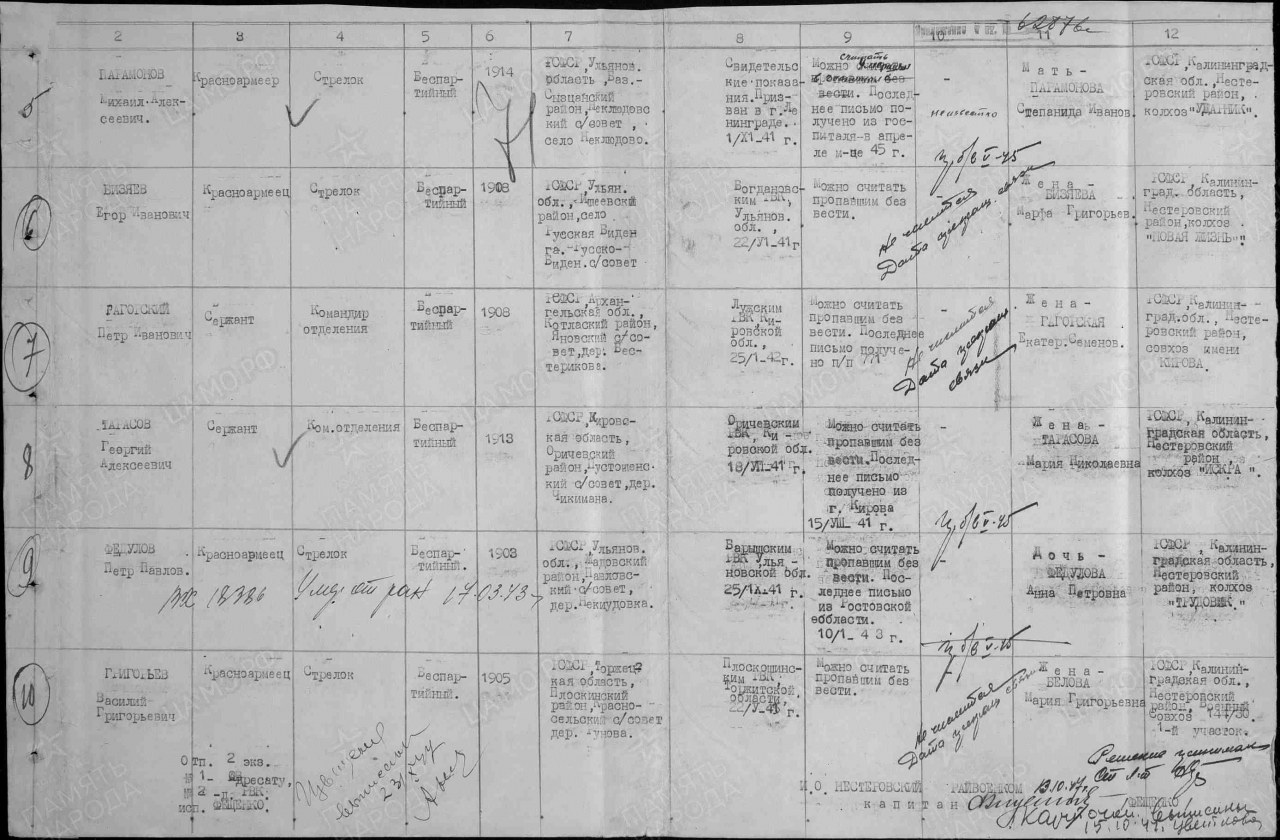 62876с
2 3 4 5 6 7 8 9 10 11 12
5
ПАРАМОНОВ
Михаил Алек-
сеевич.
Красноармеец
Стрелок
Беспар-
тийный
1914
РСФСР, Ульянов.
область, Ваз.-
район, Неклюдовс
кий с/совет,
село Неклюдово.
Свидетельс-
кие показа-
ния. Приз-
ван в г. Ле
нинграде.
1/XI-41 г.
Можно считать
вести. Послед-
нее письмо по-
лучено из гос-
питаля-в апре-
ле м-це 45 г.
-
неизвестно
Мать-
ПАРАМОНОВА
Степанида Иванов.
РСФСР, Калининград-
ская обл., Несте-
ровский район,
колхоз "УДАРНИК".
6
ВИЗЯЕВ
Егор Иванович
Красноармеец
Стрелок
Беспар-
тийный
1908
РСФСР, Ульян.
обл., Ишеевский
район, село
Русская Виден
га.-Русско-
Виден. с/совет
Богдановс-
ким РВК,
Ульянов.
обл.,
22/VI-41г
Можно считать
пропавшим без
вести.
-
Не числится
Дата прекращ. связи
Жена-
ВИЗЯЕВА
Марфа Григорьев.
РСФСР, Калинин-
град. область,
Нестеровский
район, колхоз
"НОВАЯ ЖИЗНЬ".
7
РАГОРСКИЙ
Петр Иванович
Сержант
Командир
отделения
Беспар-
тийный
1908
РСФСР, Архан-
гельская обл.,
Котласкый район,
Яновский с/со-
вет, дер. Вес-
терикова.
Лужским
РВК, Ки-
ровской
обл.,
25/I-42г.
Можно считать
пропавшим без
вести. Последнее
письмо получе-
но п/п
-
Не числится
Дата прекращ.
связи
Жена-
РАГОРСКАЯ
Екатер. Семенов.
РСФСР, Калинин-
град. обл., Несте-
ровский район,
совхоз имени
КИРОВА.
8
ТАРАСОВ
Георгий
Алексеевич
Сержант
Ком. отделения
Беспар-
тийный
1913
РСФСР, Кировс-
кая область,
Оричевский
район, Пустошенс-
кий с/совет, дер.
Чикимана.
Оричевским
РВК, Ки-
ровской обл.
18/VII-41г.
Можно считать
пропавшим без
вести. Послед-
нее письмо
получено из
г. Кирова
15/VIII-41 г.
-
Жена-
ТАРАСОВА
Мария Николаевна
РСФСР, Калинин-
градская область,
Нестеровский
район,
колхоз "ИСКРА".
9
ФЕДУЛОВ
Петр Павлов.
Красноармеец
Стрелок
Беспар-
тийный.
1903
РСФСР, Ульянов.
обл., Жадовский
район, Павловс-
кий с/совет,
дер. Пекиудовка.
вх 18386 Умер от ран 17.03.43г
Барышским
РВК Улья-
новской обл.
25/IX-41 г.
Можно считать
пропавшим без
вести. Пос-
леднее письмо
из Ростовской
области.
10/I-43 г.
-
Дочь-
ФЕДУЛОВА
Анна Петровна
РСФСР, Калинин-
градская область,
Нестеровский
район, колхоз
"ТРУДОВИК."
10
ГРИГОРЬЕВ
Василий
Григорьевич
Красноармеец
Стрелок
Беспар-
тийный.
1905
кая область,
Плоскинский
район, Красно-
сельский с/совет
дер. Рунова.
Плоскошинс-
ким РВК,
области,
22/V-41 г.
Можно считать
пропавшим без
вести.
Не числится
Дата прекращ связи
Жена-
БЕЛОВА
Мария Григорьевна
РСФСР, Калинин-
градская обл.,
Нестеровский
район, Военный
совхоз 141/30.
1-й участок.
Отп. 2 экз.
№ 1- Адресату,
№ 2 - п. РВК
исп. ФЕЩЕНКО.
И.О. НЕСТЕРОВСКИЙ РАЙВОЕНКОМ 13.10.47г.
капитан ФЕЩЕНКО
15.10.4